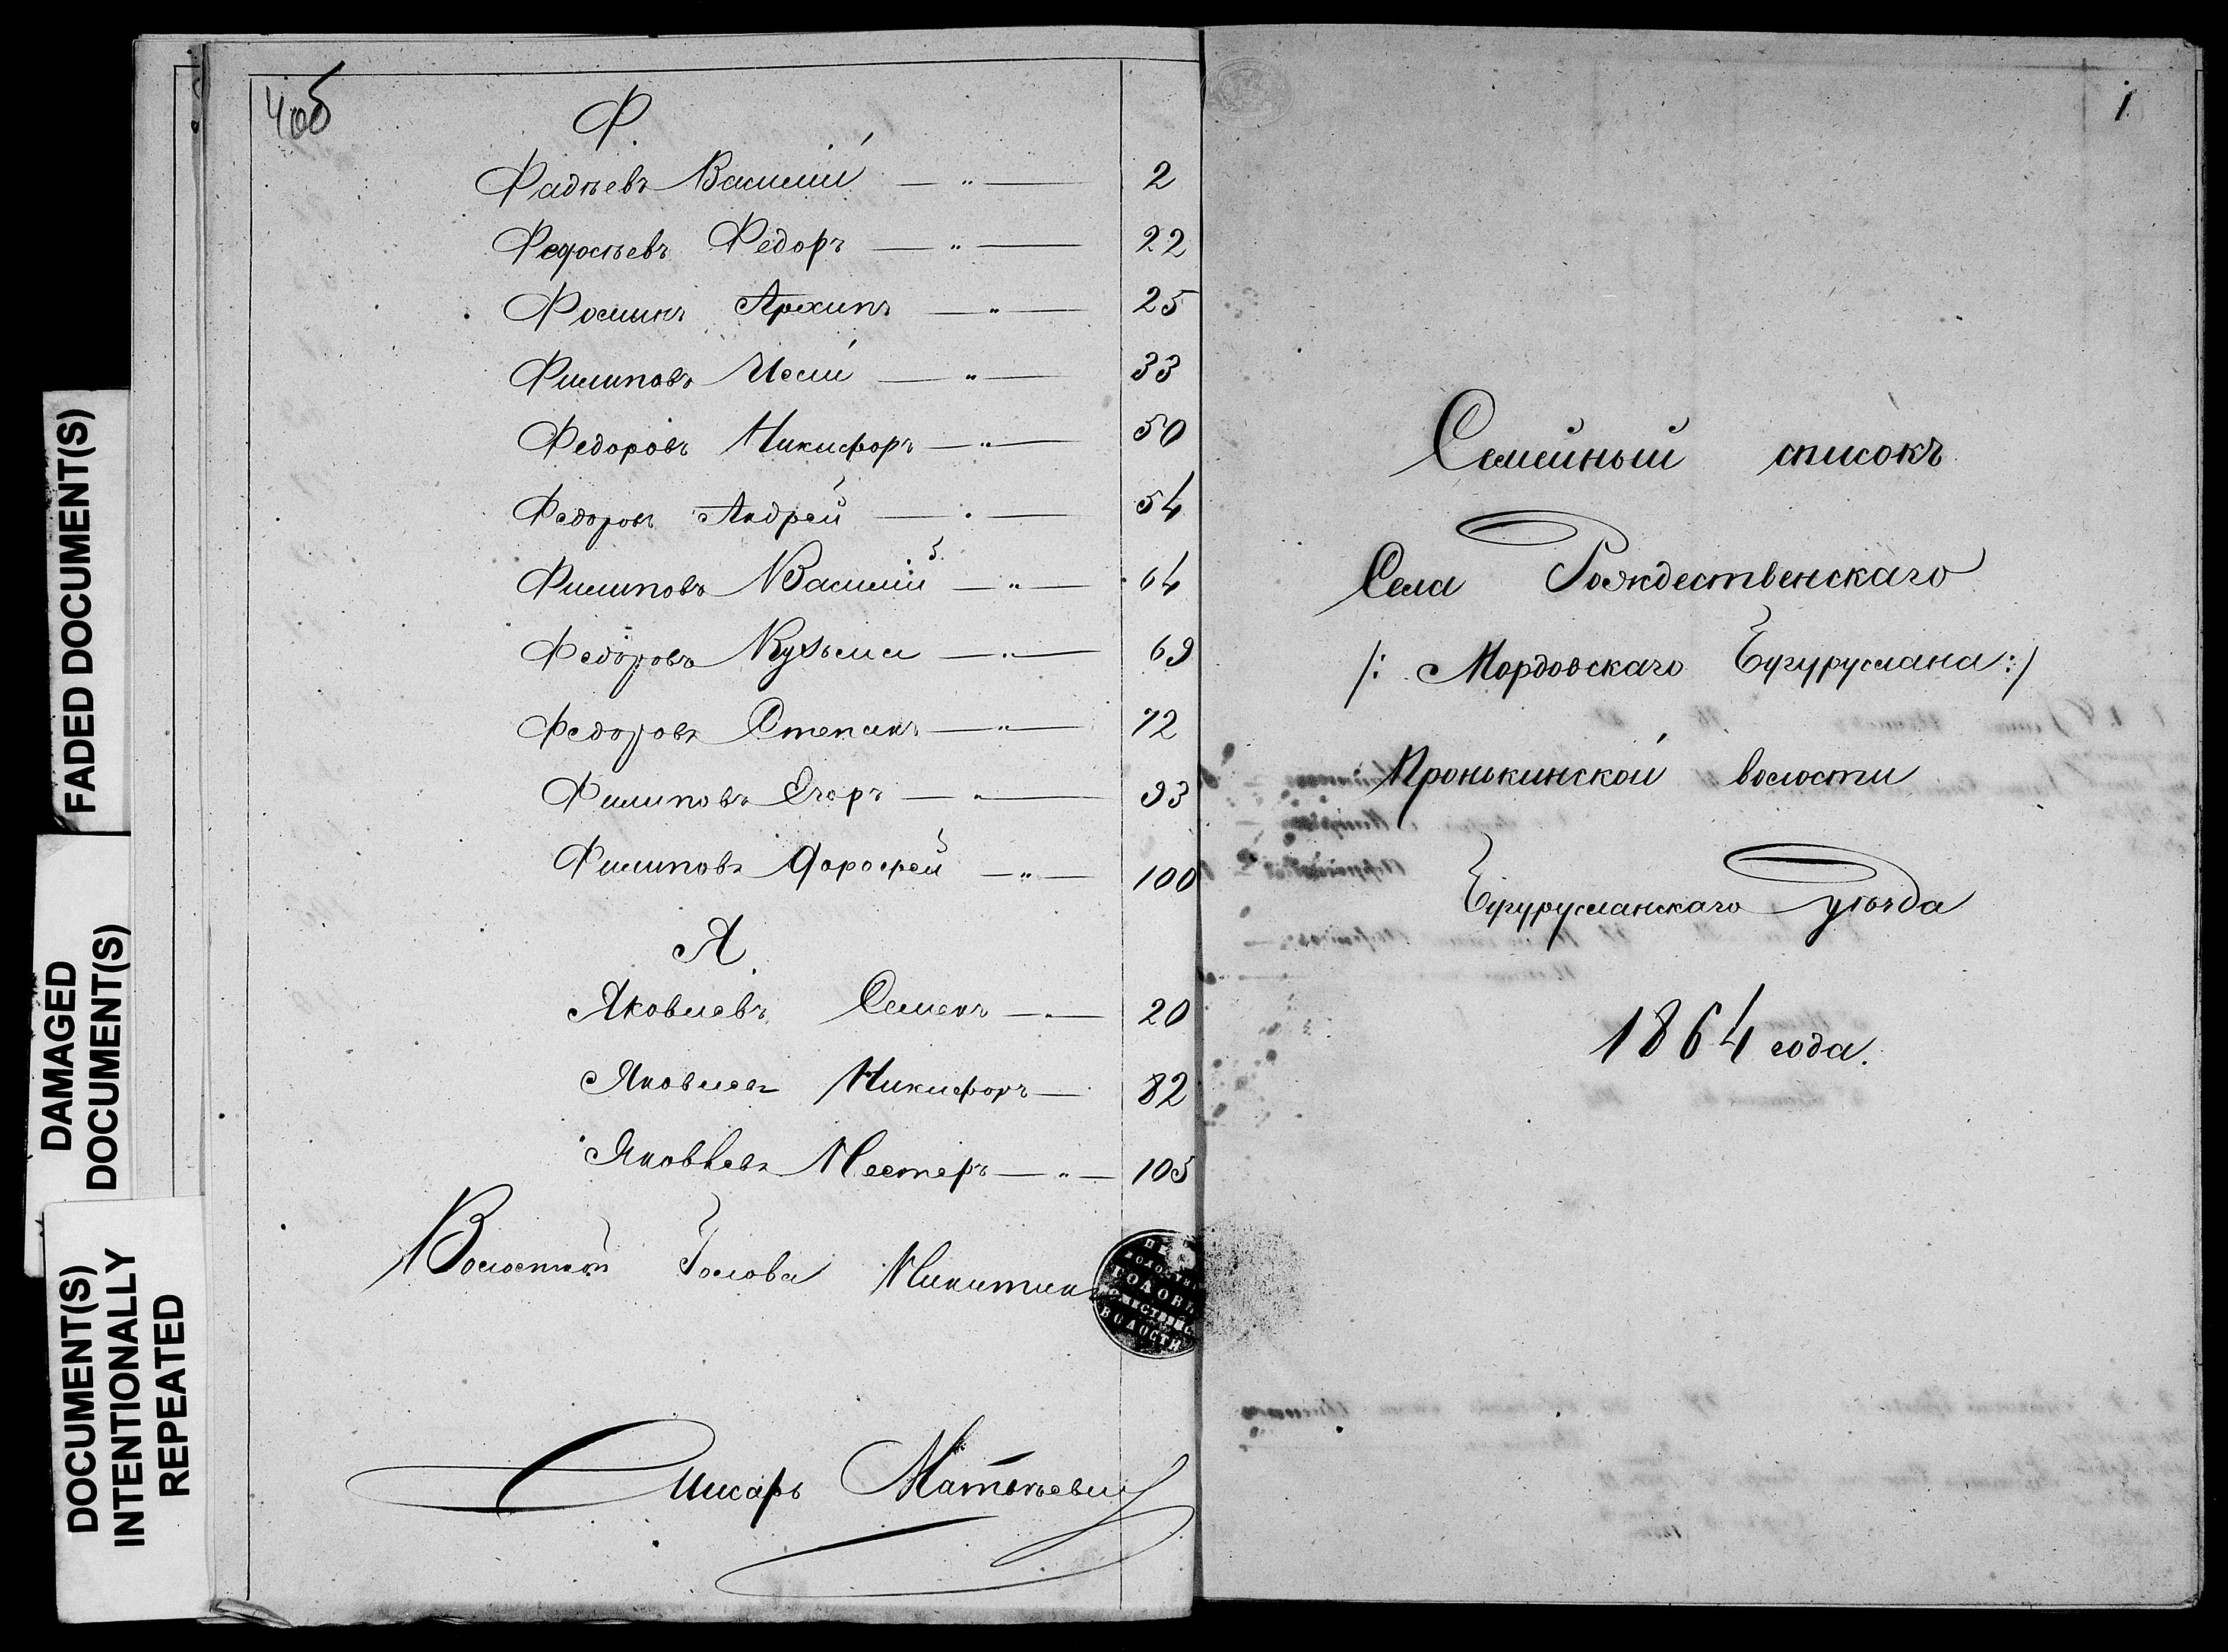 4об
Ф.
Фадѣевъ Василий — „ — 2
Федосѣевъ Федоръ — „ — 22
Фоминъ Архипъ — „ — 25
Филиповъ — „ — 33
Федоровъ Никифоръ — „ — 50
Федоровъ Андрей — „ — 54
Филиповъ Василий — „ — 64
Федоровъ Кузьма — „ — 69
Федоровъ Степанъ — „ — 72
Филиповъ Егоръ — „ — 93
Филиповъ Дорофей — „ — 100
Я
Яковлевъ Семенъ — „ — 20
Яковлевъ Никифоръ — 82
Яковлевъ Нестеръ — „ — 105
Волостной Голова Никитинъ
ГОЛОВЫ
ВОЛОСТИ
Писарь Матвѣевъ
1.
Семейный списокъ
Села Рождественскаго
/: Мордовскаго Бугуруслана :/
Пронькинской волости
Бугурусланскаго уѣзда
1864 года.
FADED DOCUMENT(S)
DAMAGED
DOCUMENT(S)
DOCUMENT(S)
INTENTIONALLY
REPEATED